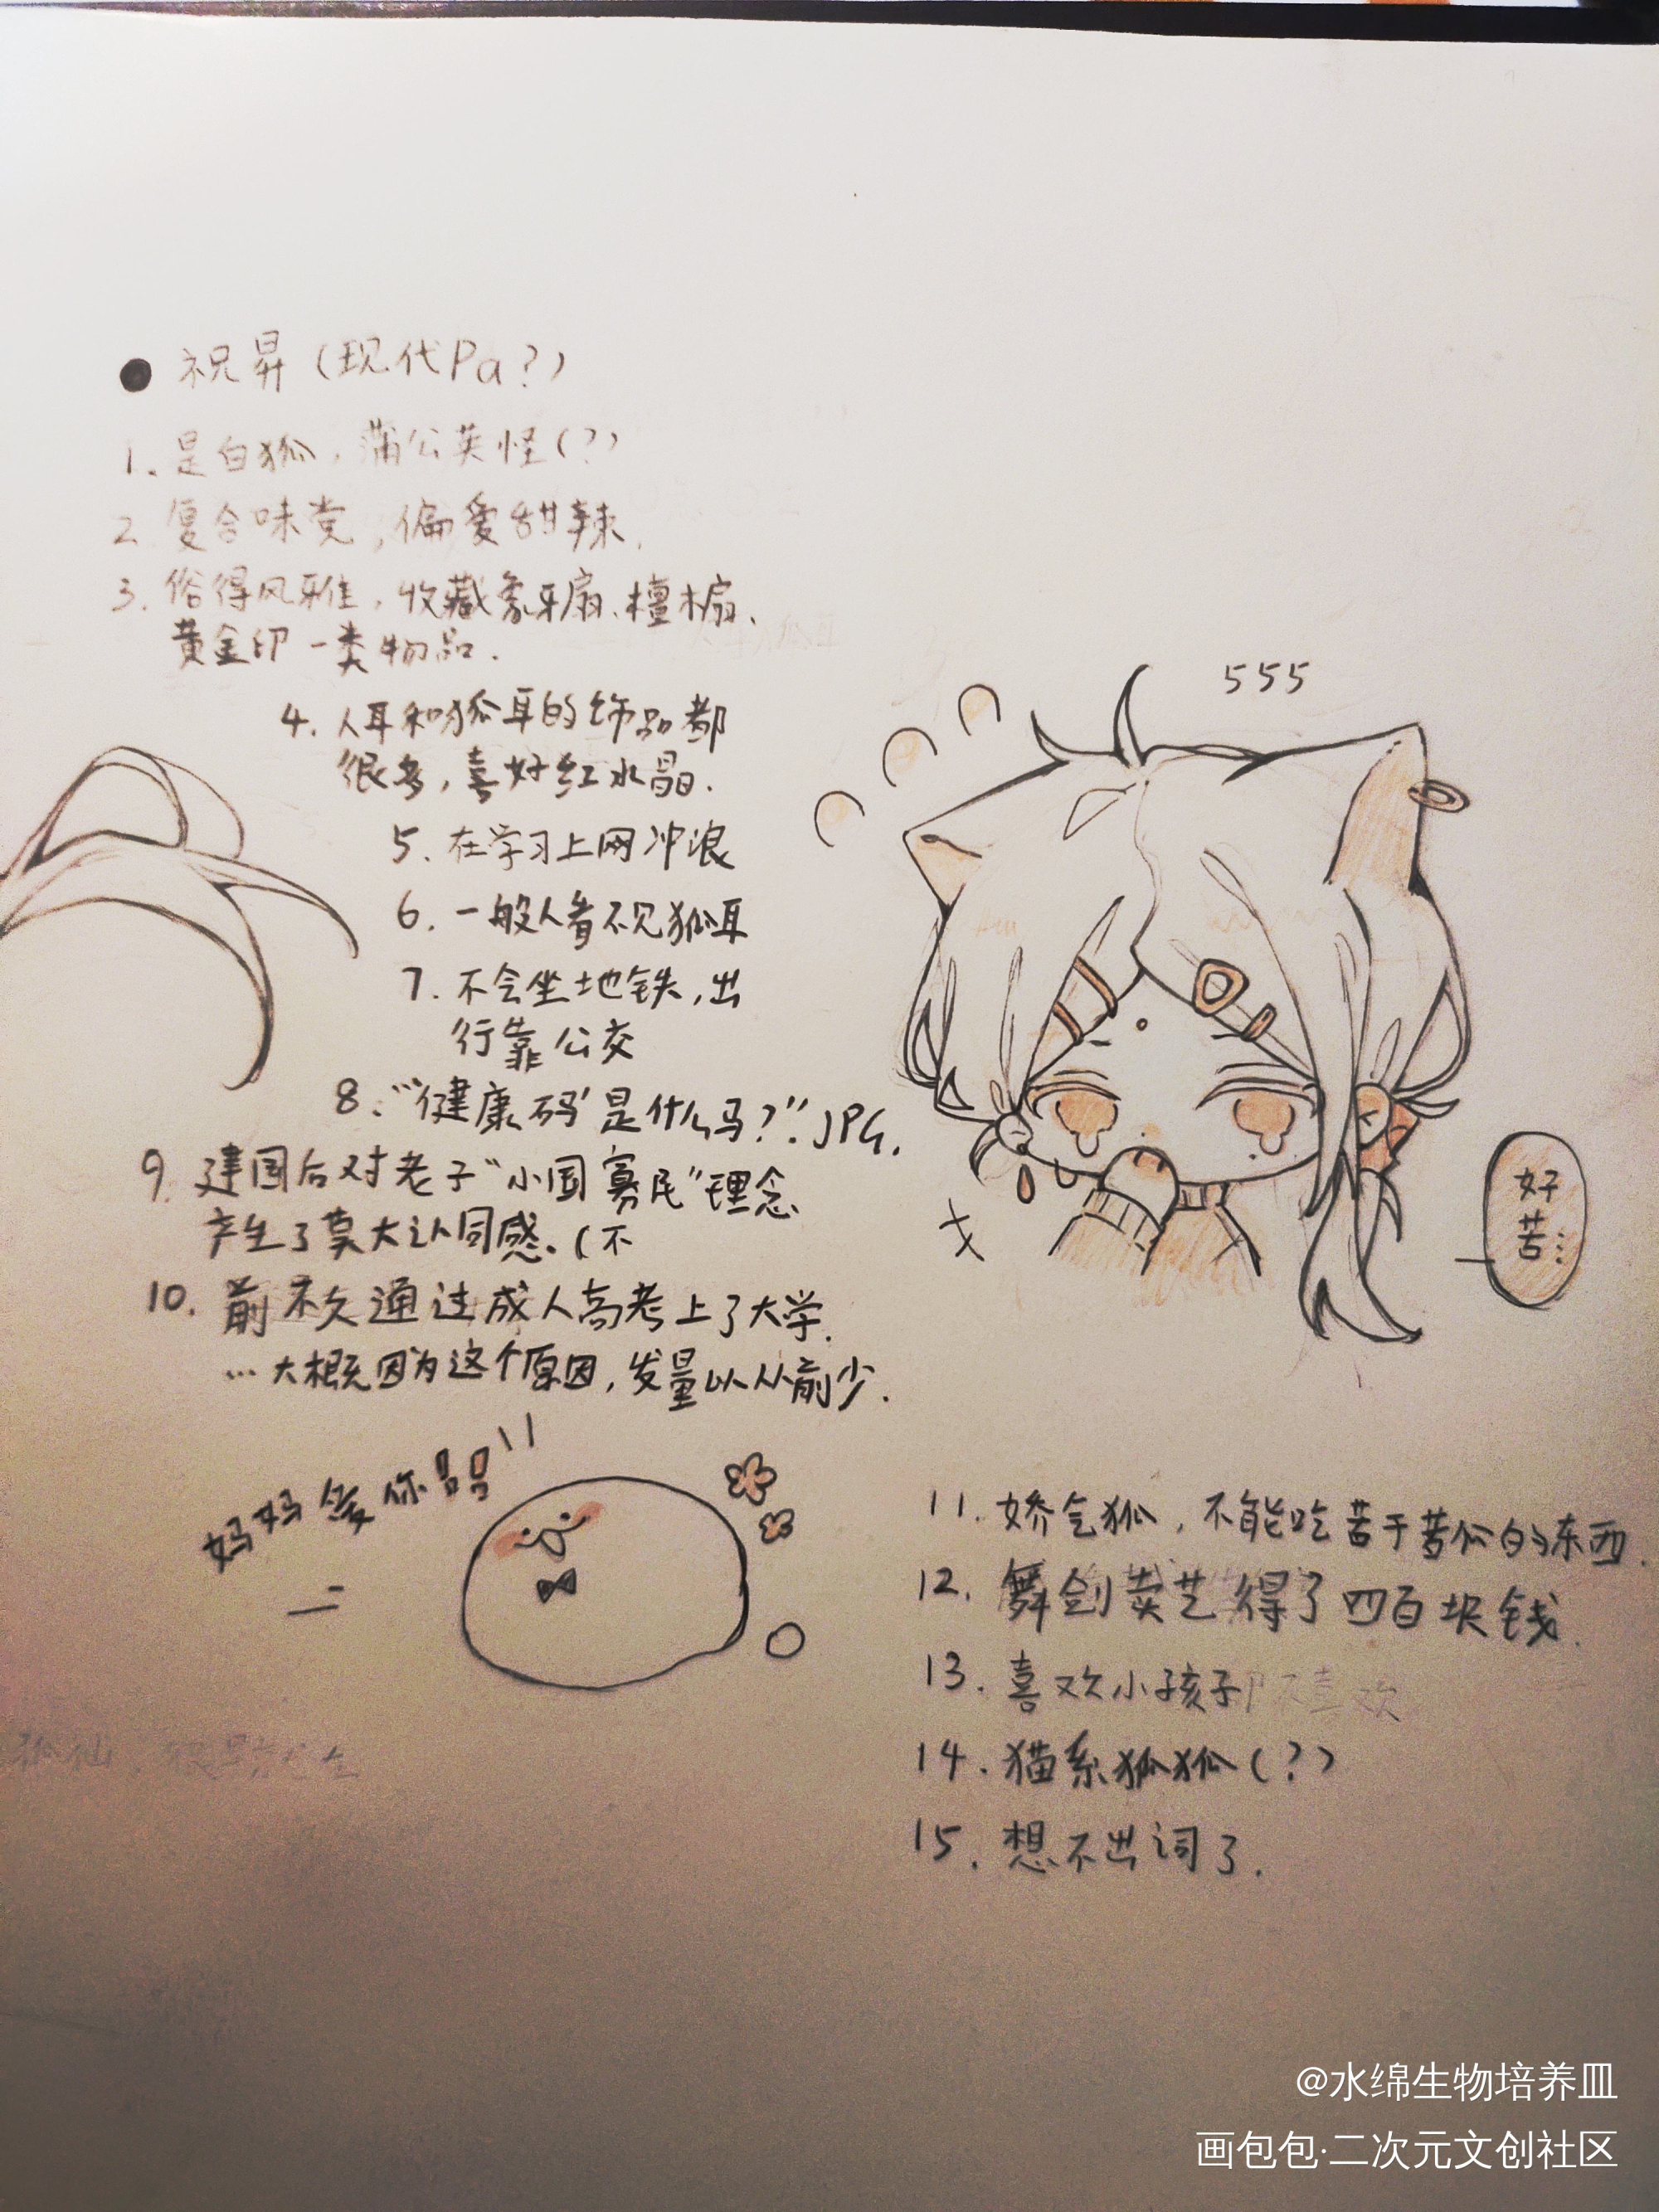 ● 祝昇（现代Pa？）
1、是白狐，蒲公英怪（？）
2、复合味党，偏爱甜辣.
3. 俗得风雅，收藏象牙扇、檀木扇、
黄金印一类物品.
4. 人耳和狐耳的饰品都
很多，喜好红水晶.
5. 在学习上网冲浪
6. 一般人看不见狐耳
7. 不会坐地铁，出
行靠公交
8、“‘健康码’是什么吗？”.JPG.
9. 建国后对老子“小国寡民”理念
产生了莫大认同感.（不
10. 前不久通过成人高考上了大学.
…大概因为这个原因，发量以从前少.
555
好苦…
妈妈爱你!!
11. 娇气狐，不能吃苦于苦瓜的东西.
12. 舞剑卖艺得了四百块钱.
13. 喜欢小孩子
不喜欢
14. 猫系狐狐（？）
15. 想不出词了.
狐仙，很
@水绵生物培养皿
画包包·二次元文创社区